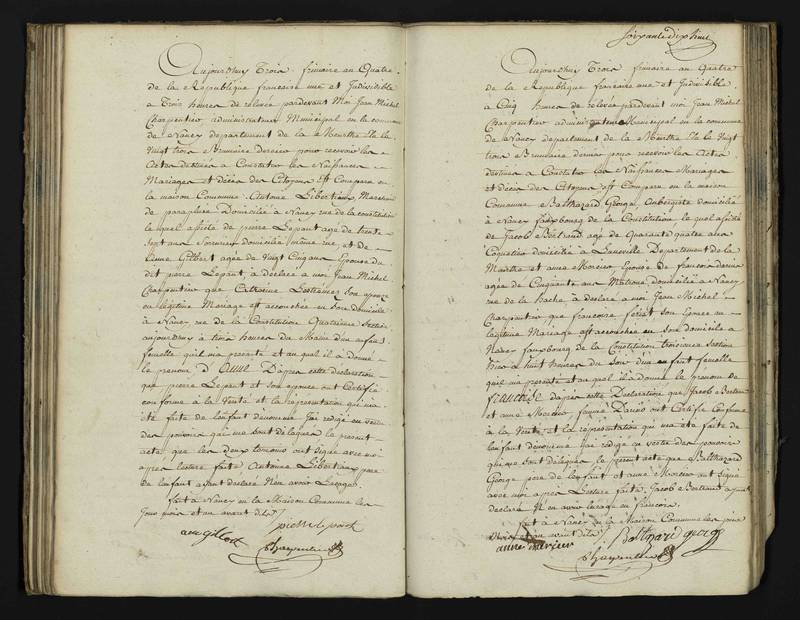 Aujourdhuy Trois frimaire an Quatre
de la Republique francaise une et Indivisible
a Trois heures de relevée pardevant Moi Jean Michel
Charpentier administrateur Municipal en la commune
de Nancy departement de la Meurthe Elu le
Vingt trois Brumaire dernier pour recevoir les
Actes destinés a Constater les Naissances
Mariages et décès des Citoyens est Comparu en
la maison Commune Antoine Libertiaux Marchand
de parapluie domicilié à Nancy rue de la constitution
lequel assisté de pierre Lepant agé de trente
Sept ans domicilié même rue, et de
Anne Gilbert agée de Vingt Cinq ans Epouse du
dit pierre Lepant, a déclaré a moi Jean Michel
Charpentier que Catherine son epouse
en légitime Mariage est accouchée en son domicile
à Nancy rue de la Constitution Quatrieme Section
aujourdhuy à trois heures du Matin d'un enfant
femelle qu'il m'a presenté et au quel il a donné
le prenom d'Anne D'après cette declaration
que pierre Lepant et son epouse ont Certifié
conforme à la Verité et la représentation qui m'a
été faite de lenfant dénommé J'ai redigé en vertu
des pouvoirs qui me sont délégués le présent
acte que les deux temoins ont signé avec moi
apres lecture faite Antoine Libertiaux pere
de lenfant ayant declaré N'en avoir L'usage.
fait à Nancy en la Maison Commune les
Jour mois et an avant dits
anne gilbert pierre lepant
Charpentier
Soixante dix huit
Aujourdhuy Trois frimaire an Quatre
de la Republique francaise une et Indivisible
a Cinq heures de relevée pardevant moi Jean Michel
Charpentier administrateur Municipal en la commune
de Nancy departement de la Meurthe Elu le Vingt
trois Brumaire dernier pour recevoir les Actes
destinés a Constater les Naissances Mariages
et décès des Citoyens est Comparu en la maison
Commune Balthazard George Aubergiste domicilié
à Nancy fauxbourg de la Constitution lequel assisté
de Jacob Bertrand agé de Quarante quatre ans
Coquetier domicilié à Luneville Departement de la
Meurthe et anne Mercier Epouse de francois
agée de Cinquante ans Matrone, domiciliée a Nancy
rue de la hache a déclaré a moi Jean Michel
Charpentier que francoise son Epouse en
légitime Mariage est accouchée en son domicile a
Nancy fauxbourg de la Constitution troisieme Section
hier à huit heures du Soir d'un enfant femelle
qu'il m'a presenté et au quel il a donné le prenom de
d'apres cette Declaration que Jacob Bertrand
et anne Mercier femme ont Certifié Conforme
à la Verité, et la représentation qui m'a eté faite de
lenfant dénommé j'ai rédigé en vertu des pouvoirs
qui me sont délégués, le present acte que Balthazard
George pere de lenfant et anne Mercier ont signé
avec moi apres Lecture faite, Jacob Bertrand ayant
declaré N'en avoir lusage en francois.
fait à Nancy en la Maison Commune les jour
Mois et an avant dits
anne mercier Baltazard george
Charpentier